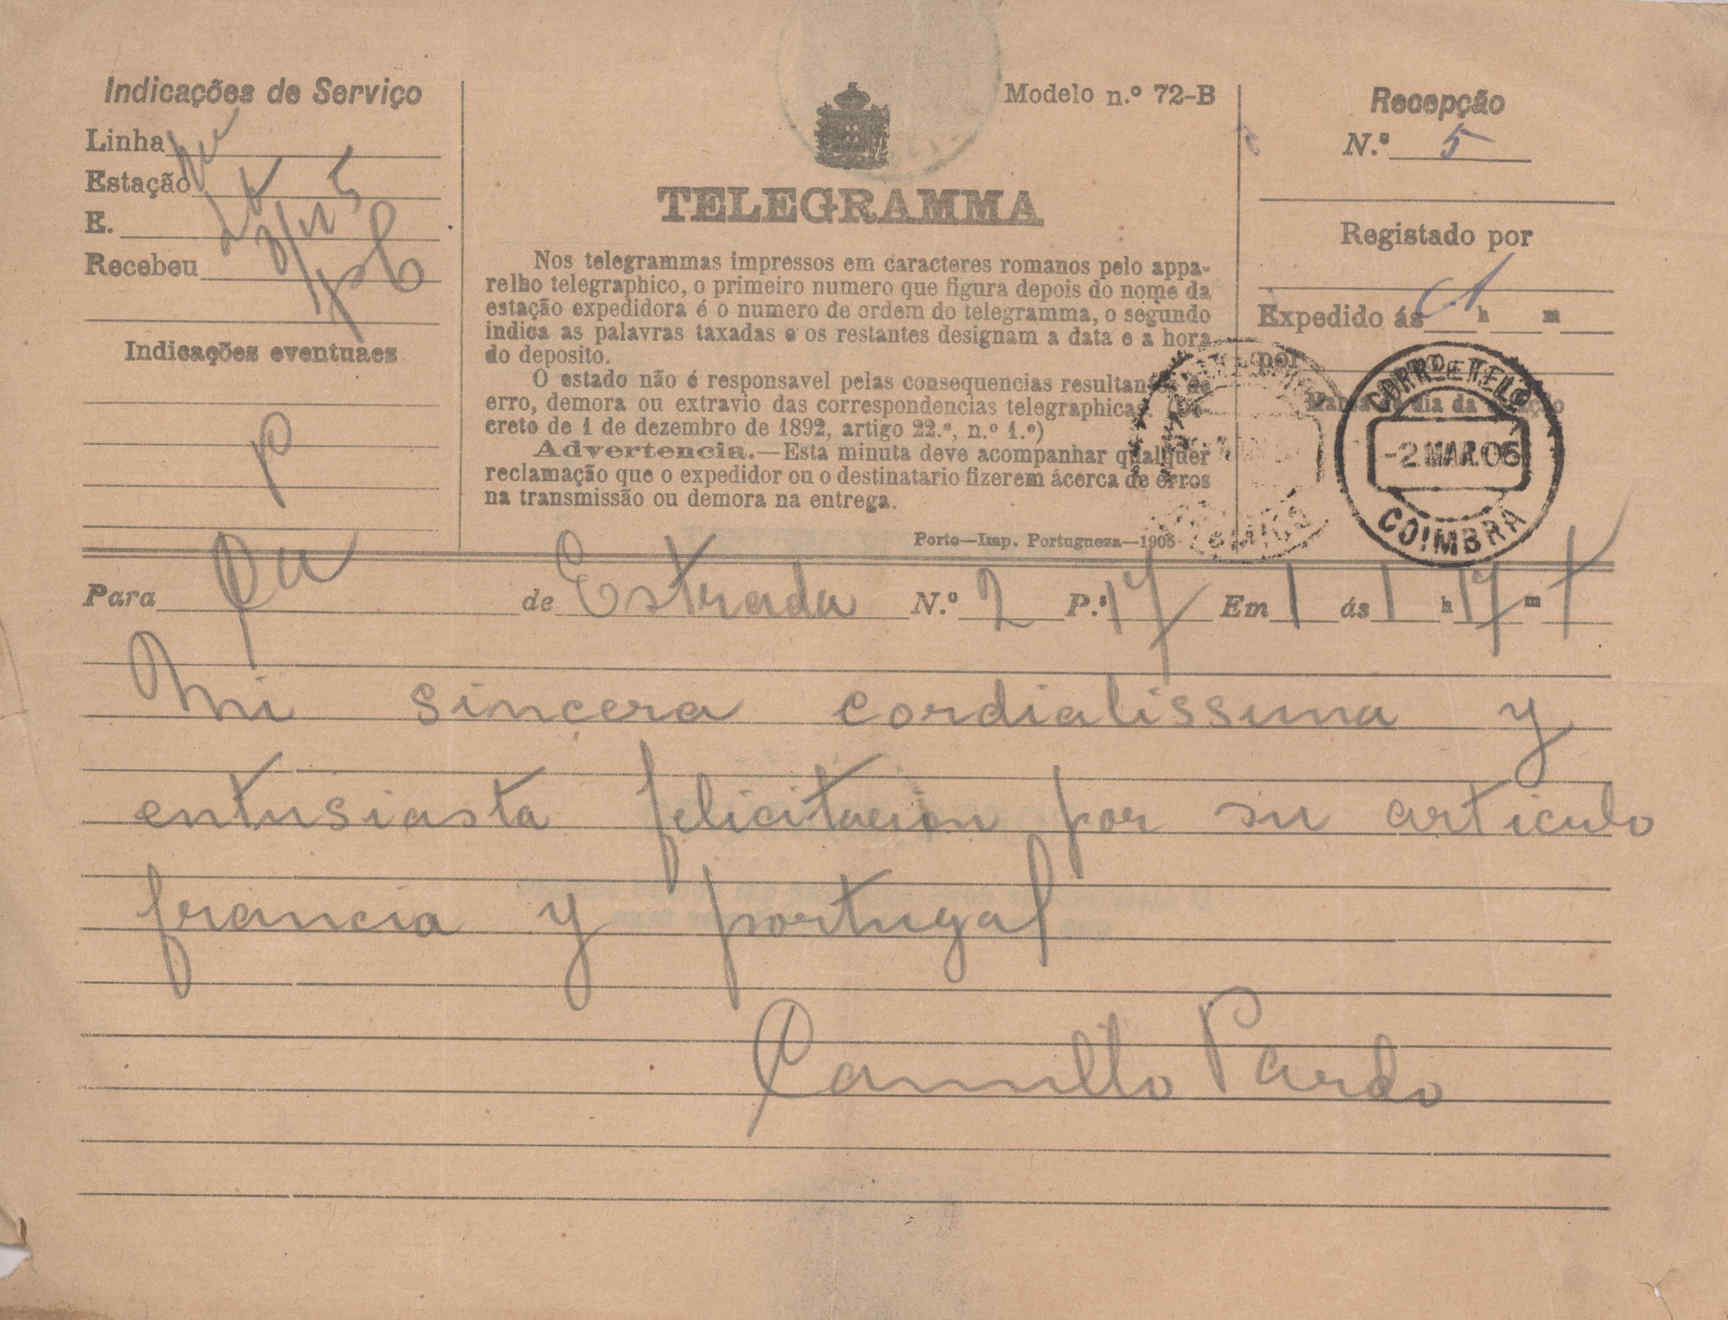 Indicações de Serviço
Linha
Estação
E.
Recebeu
Indicações eventuaes
P
Modelo n.º 72-B
TELEGRAMMA
Nos telegrammas impressos em caracteres romanos pelo appa-
relho telegraphico, o primeiro numero que figura depois do nome da
estação expedidora é o numero de ordem do telegramma, o segundo
indica as palavras taxadas e os restantes designam a data e a hora
do deposito.
O estado não é responsavel pelas consequencias resultantes de
erro, demora ou extravio das correspondencias telegraphicas. (De-
creto de 1 de dezembro de 1892, artigo 22.º, n.º 1.º)
Advertencia.—Esta minuta deve acompanhar qualquer
reclamação que o expedidor ou o destinatario fizerem ácerca de erros
na transmissão ou demora na entrega.
Porto—Imp. Portugueza—1905
Recepção
N.º 5
Registado por
Expedido ás h m
por
CORRO E TELO
-2 MAR.06
COIMBRA
Para de Estrada N.º 2 P.s 17 Em 1 ás 1 h 17 m t
Mi sincera cordialissima y
entusiasta felicitacion por su articulo
francia y portugal
Camillo Pardo